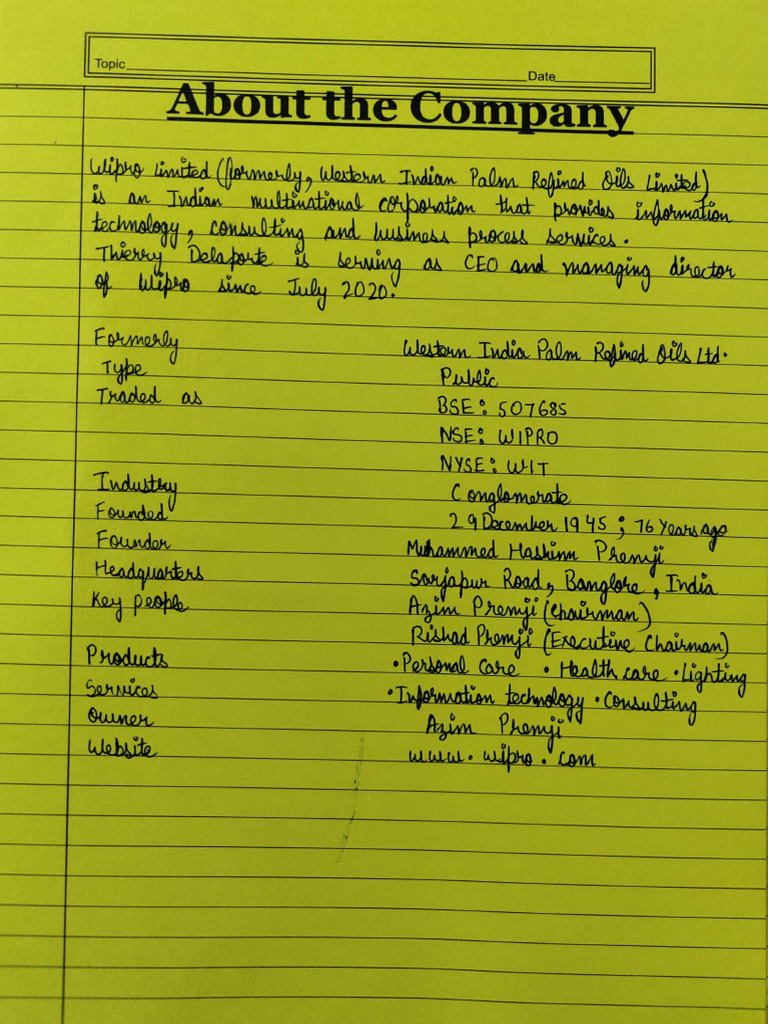 Topic Date
About the Company
Wipro Limited (formerly, Western Indian Palm Refined Oils Limited)
is an Indian multinational corporation that provides information
technology, consulting and business process services.
Thierry Delaporte is serving as CEO and managing director
of Wipro since July 2020.
Formerly Western India Palm Refined Oils Ltd.
Type Public
Traded as BSE: 507685
NSE: WIPRO
NYSE: WIT
Industry Conglomerate
Founded 29 December 1945 ; 76 Years ago
Founder Muhammed Hashim Premji
Headquarters Sarjapur Road, Banglore, India
Key people Azim Premji (Chairman)
Rishad Premji (Executive Chairman)
Products • Personal care • Health care • Lighting
Services • Information technology • Consulting
Owner Azim Premji
Website www.wipro.com